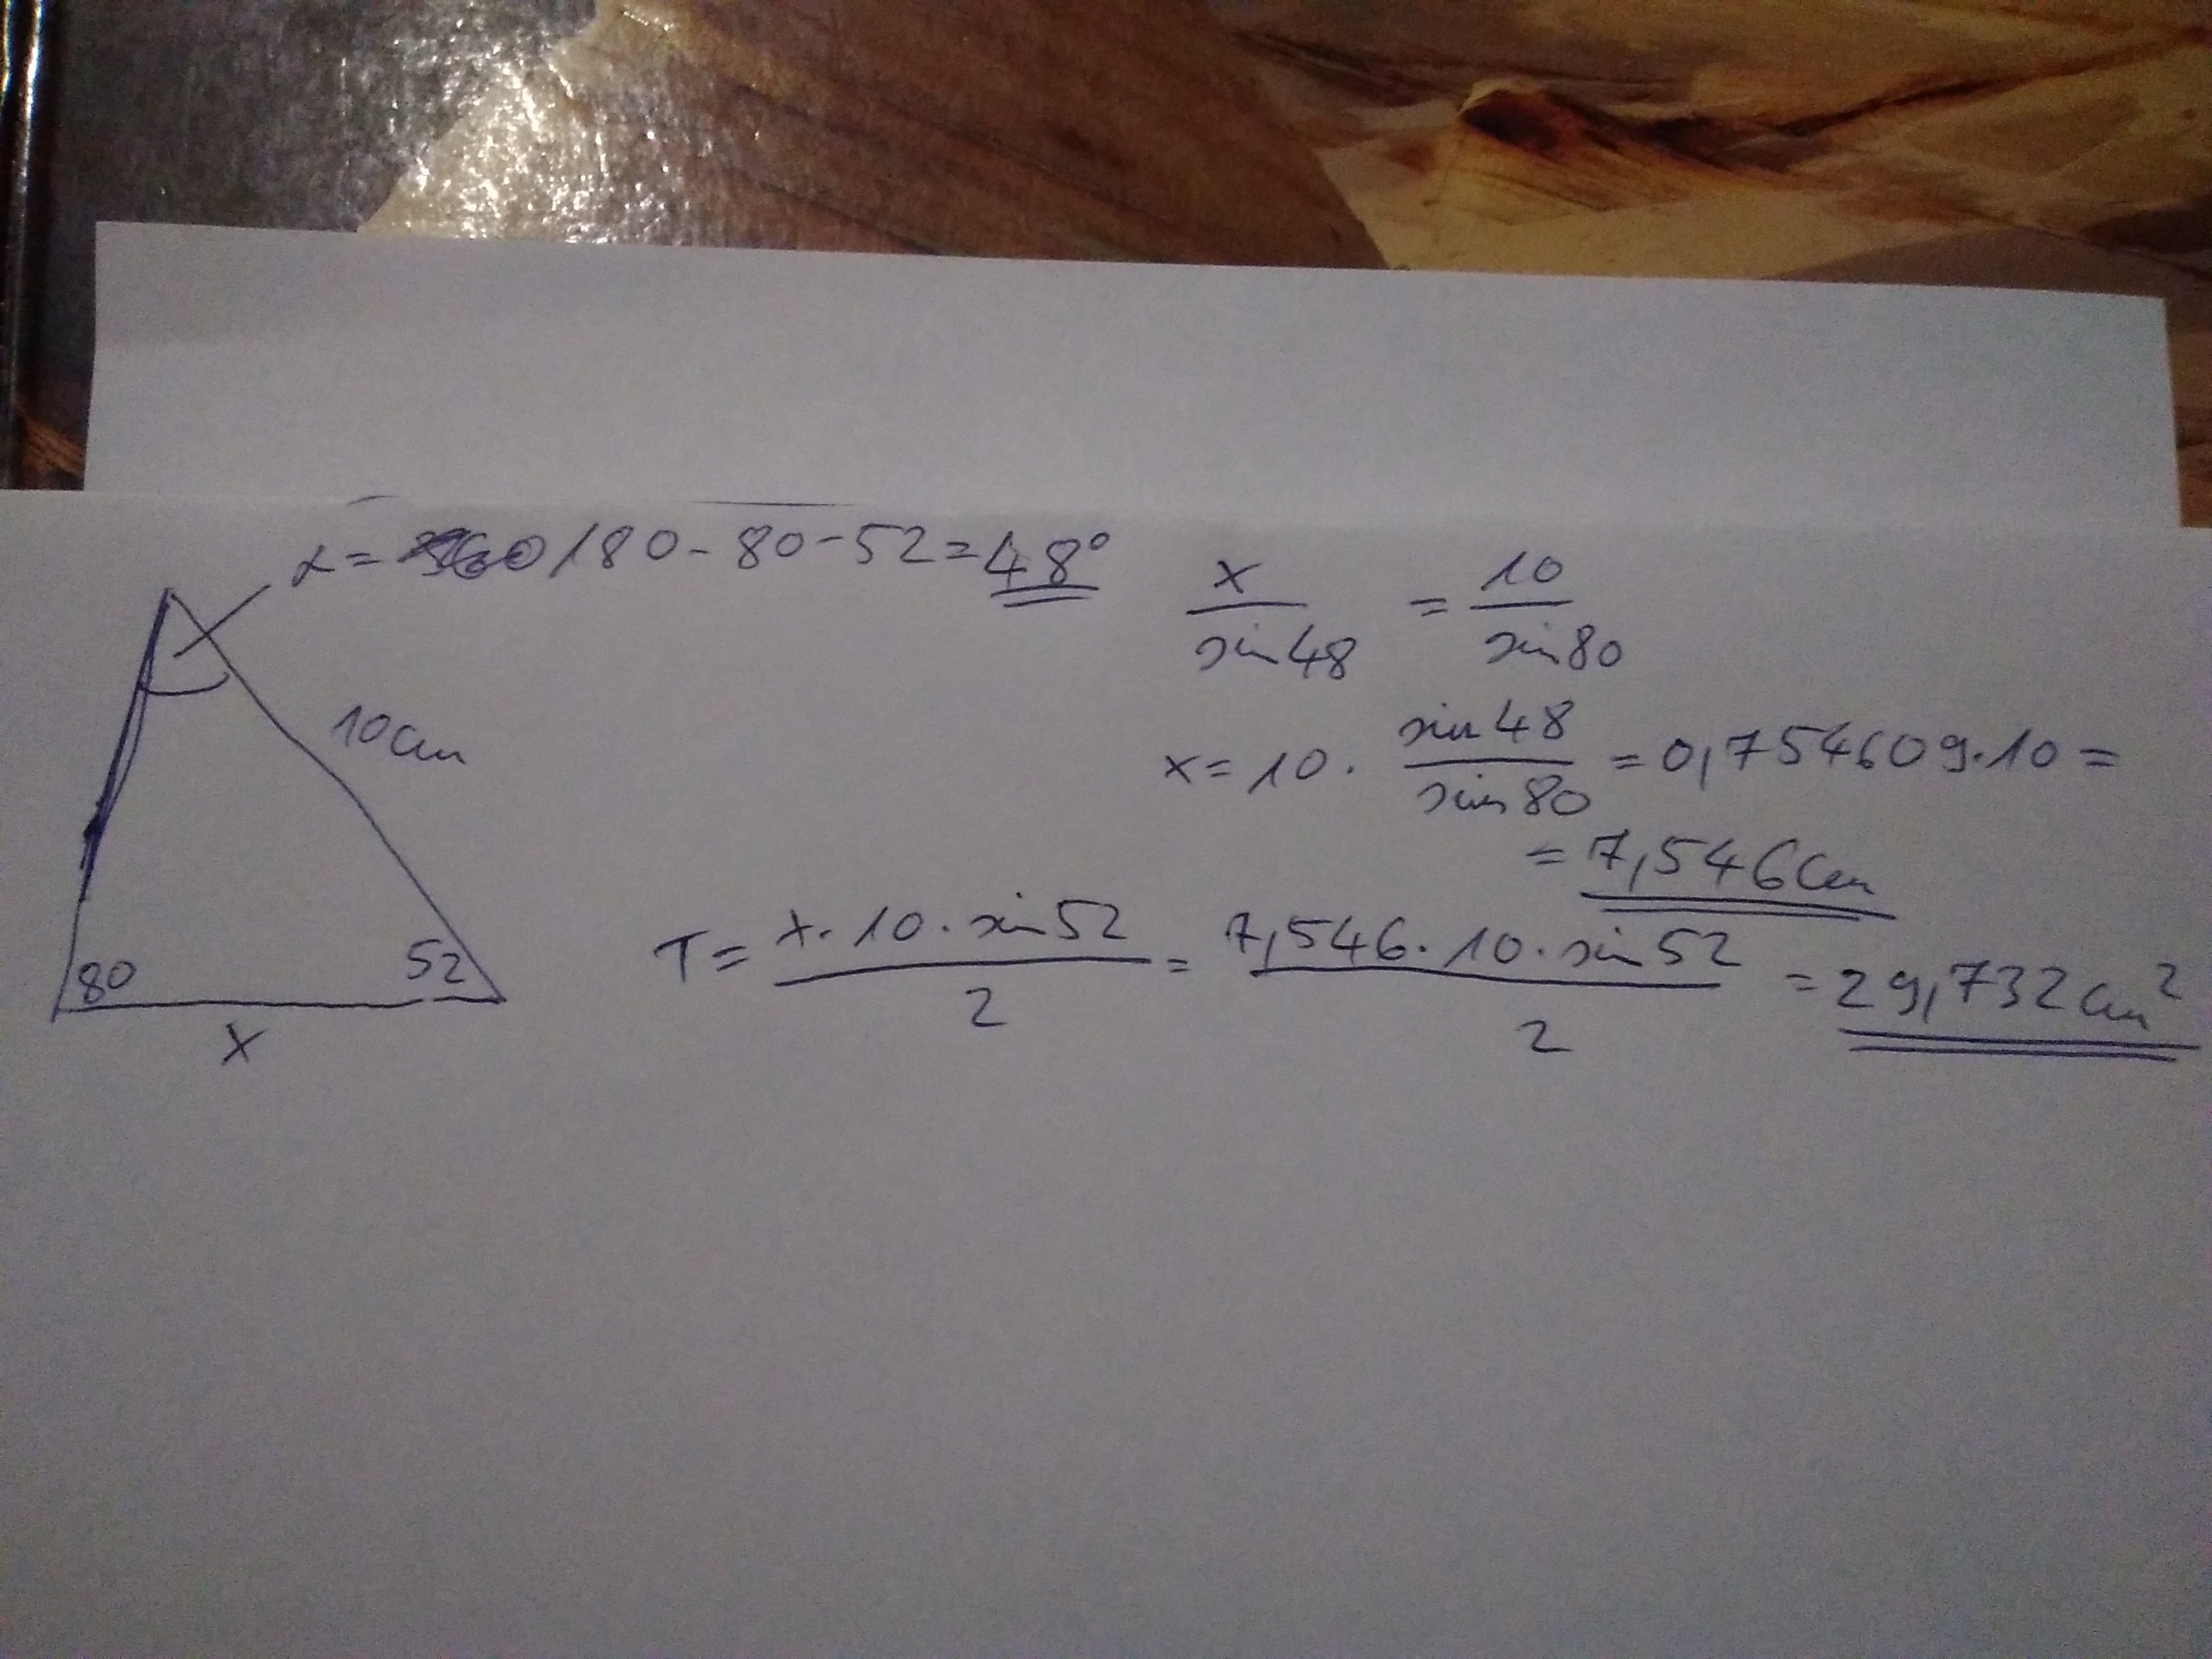 α = 180 - 80 - 52 = 48°
10cm
80
52
x
x/sin48 = 10/sin80
x = 10 · sin48/sin80 = 0,754609·10 =
= 7,546cm
T = x·10·sin52/2 = 7,546·10·sin52/2 = 29,732cm²